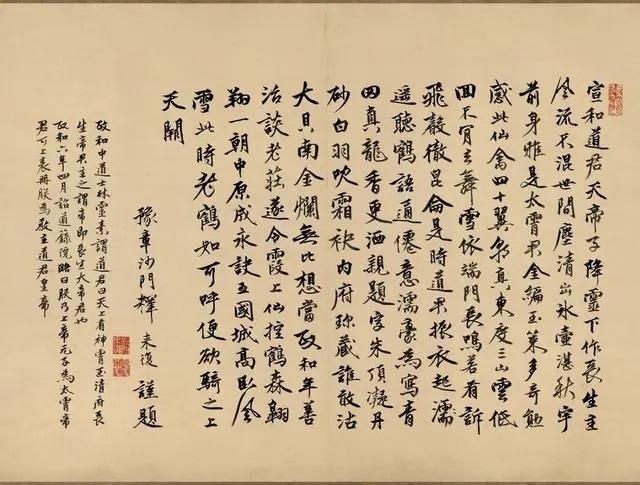 宣和道君天帝子降靈下作長生主
風流不混世間塵清出氷壺湛秋宇
前身雅是太霄君金編玉策多奇勳
感此仙禽四十翼朝真東度三山雲低
回不肎去舞雪依端門長鳴若有訴
飛轂徹昆侖是時道君振衣起
遥聽鶴語通僊意濡豪為寫青
田真龍香更洒親題字朱頂凝丹
砂白羽吹霜袂内府珎藏誰敢沽
大貝南金爛無比想當政和年善
治談老莊遂令霞上仙控鶴森翱
翔一朝中原成永訣五國城高卧風
雪此時老鶴如可呼便欲騎之上
天闕
豫章沙門釋 来復 謹題
政和中道士林靈素謂道君曰天上有神霄玉清府長
生帝君主之謂帝即長生大帝君也
政和六年四月詔道籙院畧曰朕乃上帝元子為太霄帝
君可上表冊朕為教主道君皇帝